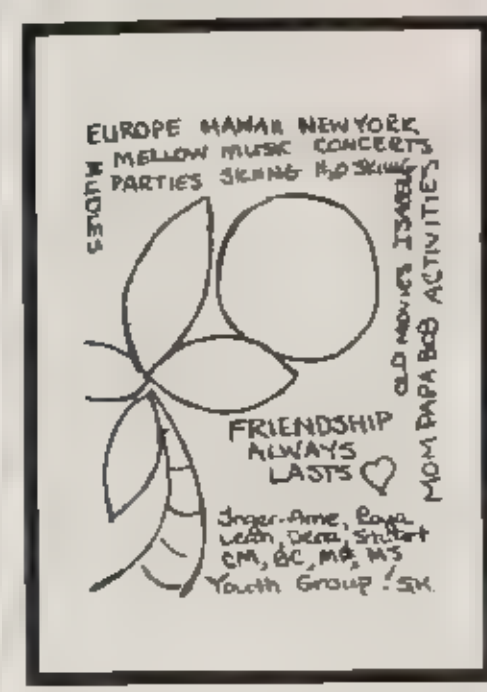 EUROPE HAWAII NEW YORK
MELLOW MUSIC CONCERTS
PARTIES SKIING H2O SKIING
OLD MOVIES ISABEL
MOM PAPA BOB ACTIVITIES
FRIENDSHIP
ALWAYS
LASTS ♡
Inger-Anne,
Leah,
CM, BC, MP, MS
Youth Group! SK